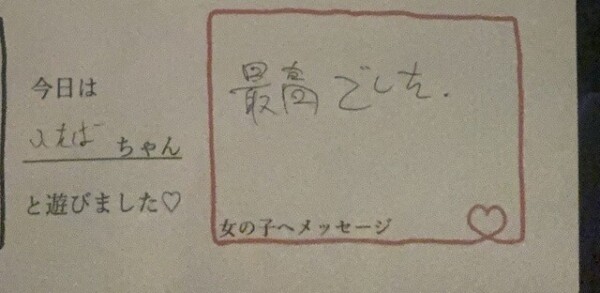 今日は
いえば ちゃん
と遊びました♡
最高でした.
女の子へメッセージ